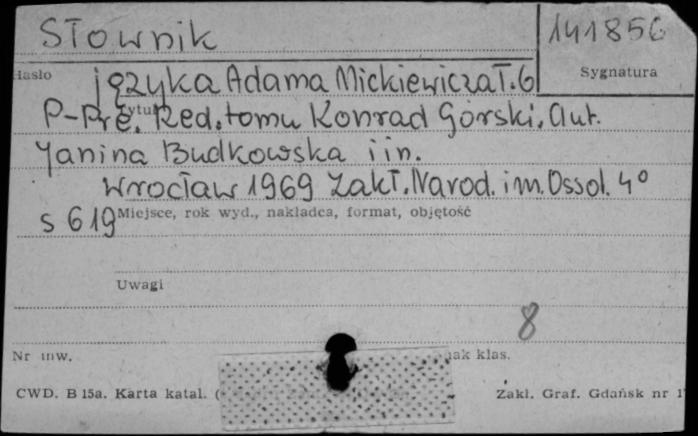 Słownik
141856
Hasło
Sygnatura
języka Adama Mickiewicza T. 6
Tytuł
P-Pre. Red. tomu Konrad Górski. Aut.
Janina Budkowska i in.
Wrocław 1969 Zakł. Narod. im. Ossol. 4°
s 619
Miejsce, rok wyd., nakładca, format, objętość
Uwagi
8
Nr inw.
klas.
CWD. B 15a. Karta katal. (
Zakł. Graf. Gdańsk nr